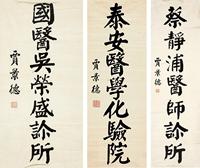 蔡靜浦醫師診所
賈景德
泰安醫學化驗院
賈景德
國醫吳榮盛診所
賈景德